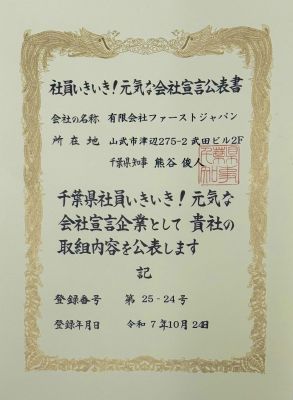 社員いきいき！元気な会社宣言公表書
会社の名称 有限会社ファーストジャパン
所在地 山武市津辺275-2 武田ビル2F
千葉県知事 熊谷 俊人
千葉県社員いきいき！元気な
会社宣言企業として 貴社の
取組内容を公表します
記
登録番号 第25-24号
登録年月日 令和7年10月24日